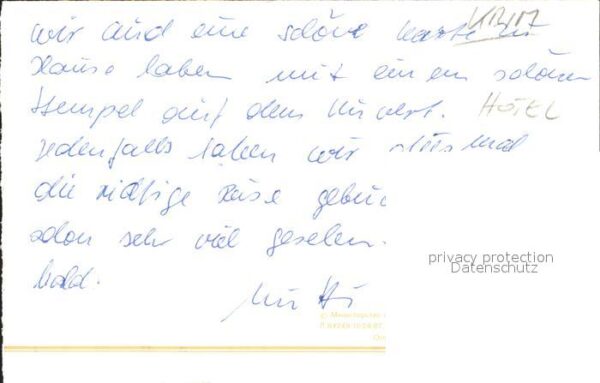 wir auch eine schöne Karte zu
Hause haben mit einem schönen
Stempel auf dem Kuvert. HOTEL
Jedenfalls haben wir diesmal
die richtige Reise gebuc
schon sehr viel gesehen.
bald.
Mutti
privacy protection
Datenschutz